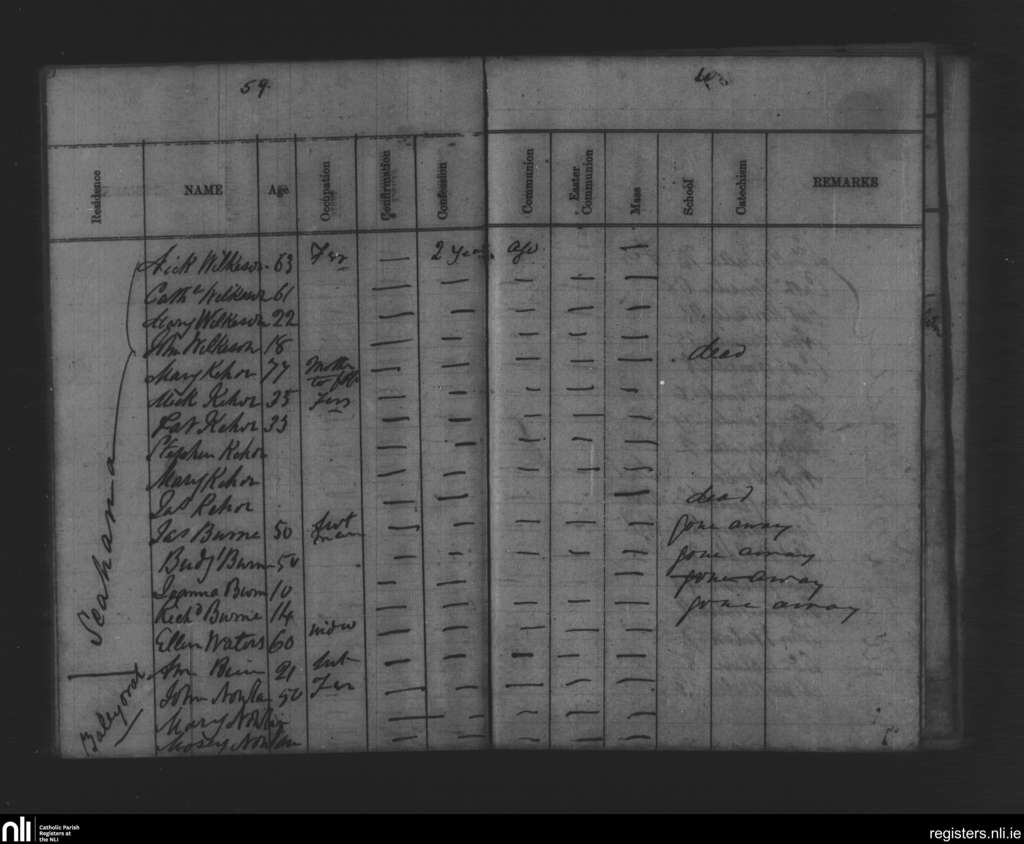 59
Residence NAME Age Occupation Confirmation Confession Communion Easter Communion Mass School Catechism REMARKS
Seahana
Nick Wilkeson 63 Fer 2 years ago
Cathe Wilkeson 61
Mary Wilkeson 22
Jno Wilkeson 18
Mary Kehor 77 Mother to foll dead
Mick Kehor 35 Fers
Pat Kehor 33
Stephen Kehor
Mary Kehor
Jas Kehor dead
Jas Burne 50 gone away
Bridgt Burn 50 gone away
Joanna Burn 10 gone away
Richd Burne 14 gone away
Ellen Waters 60 widw
21
John Nowlan 50 Fer
Mary Nowlan
Mosey Nowlan
nli Catholic Parish Registers at the NLI
registers.nli.ie